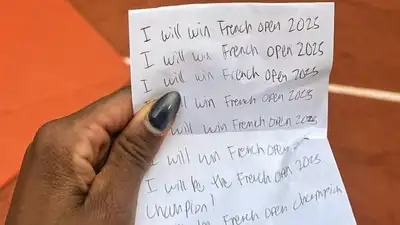 I will win French open 2025
I will win French open 2025
I will win French open 2025
will win French open 2025
will win French open 2025
I will win French open
I will be the French open 2025
Champion!
be the French open champion